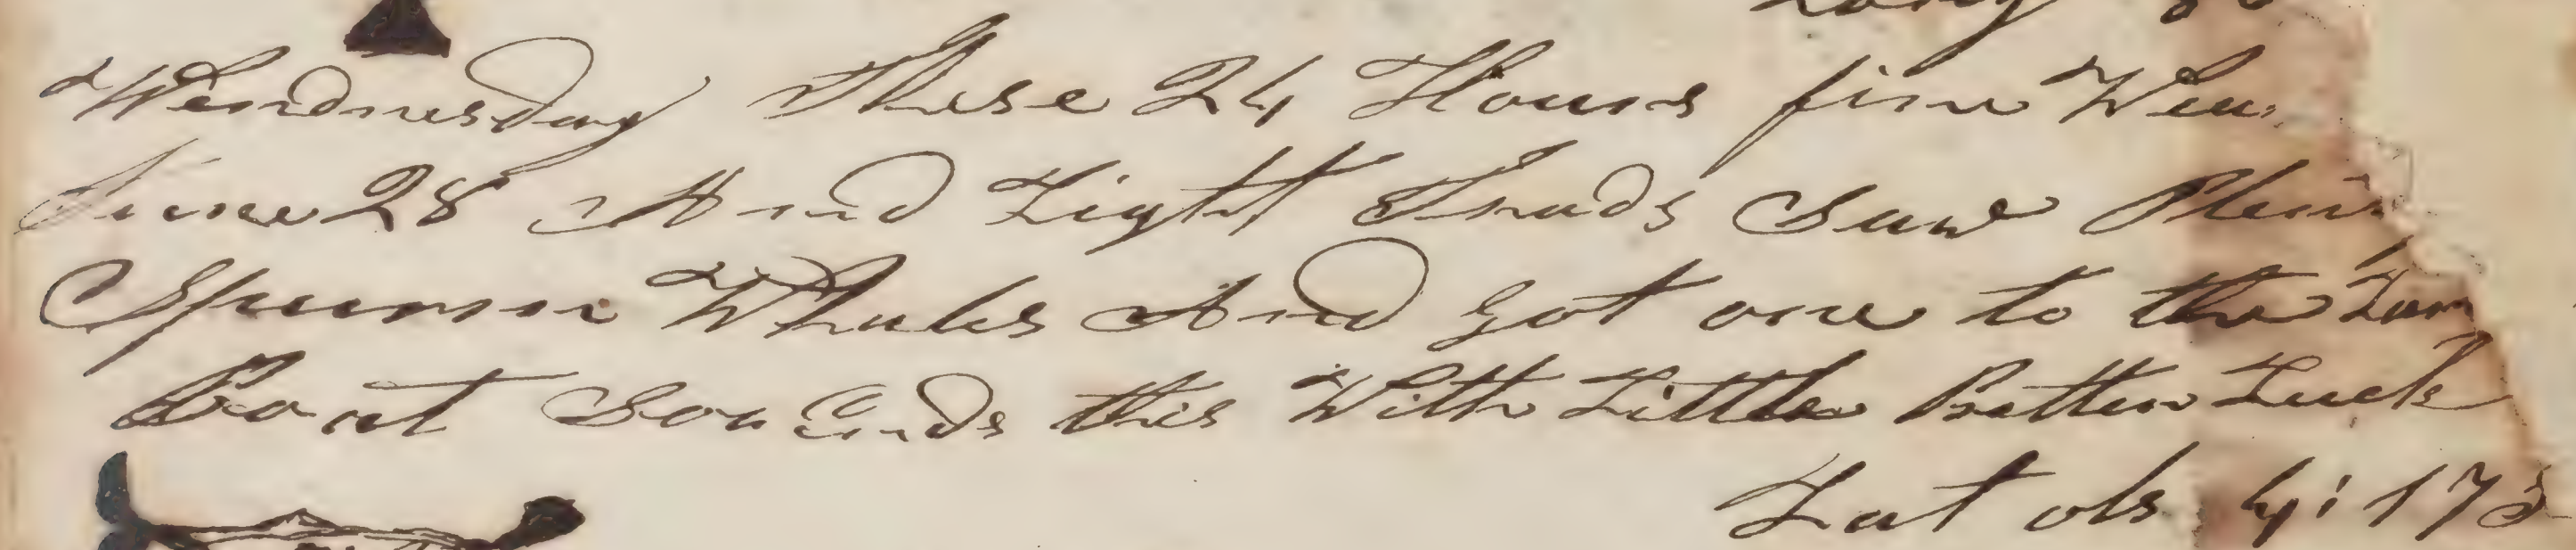 Long
Wendnesday These 24 Hours fine Wea
June 28 And Light Trads Saw Plen
Spurm Whales And got one to the Lar
Boat Soo Ends this With Little Better Luck
Lat obs 4: 17